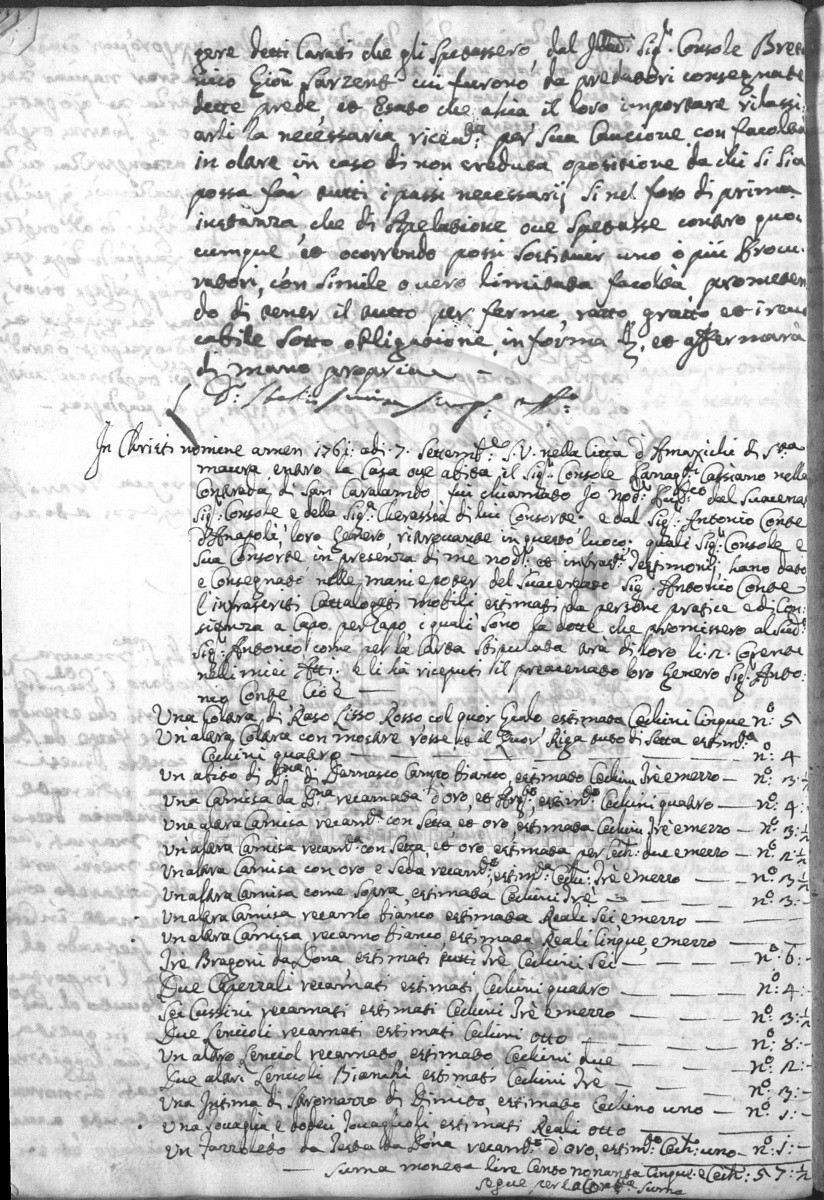 gere detti Carati che gli Spetassero, dal Sig.r Console Breta
nico Gion Sarzent cui furono da predatori consegnate
dette prede, et Esato che abia il loro importare rilassi
arli la necessaria ricev.ta per sua Cautione con facoltà
in olare in caso di non creduta opositione da chi si sia
possa far tutti i passi necessarij si nel foro di prima
instanza, che di Apelatione ove spetasse contro quoi
cumque, et ocorrendo possi sostituir uno o più Procu
ratori, con simile overo limitata facoltà prometen
do di tener il tutto per fermo, ratto, gratto et irevo
cabile sotto obligatione in forma, et affermarà
di mano propria
In Christi nomine amen 1761 adi 7. Settemb.e S.V. nella Città d'Amaxichi di S.ta
maura, entro la Casa ove abita il Sig.r Console Panag.ti Cassiano nella
Contrada di San Caralambo, fui chiamato Io nod.o dal suacena
Sig.r Console e della Sig.a Cherassià di lui Consorte e dal Sig.r Antonio Conte
d'Anapoli, loro Genero, ritrovante in questo luoco; quali Sig.r Console e
Sua Consorte in presenza di me nod.o et infras.ti Testimonij hano dato
e Consegnato nelle mani e poter del suacenato Sig.r Antonio Conte
l'infrascriti Cattalogati mobili estimati da persone pratice e di Con-
sienza a Capo per Capo, i quali sono la dotte che promissero al Sud.o
Sig.r Antonio come per la Carta stipulata tra di loro li 2. Corente
nelli miei Atti. e li hà riceputi il preacenato loro Genero Sig.r Anto-
nio Conte Cioè —
Una Cotara di Raso Lisso Rosso col quor Gialo estimata Cechini Cinque n.o 5
Un'altra Cotara con mostre rosse et il Quor Riga tuto di Setta estim.ta
Cechini quatro — n.o 4
Un abito di D.na di Damasco Campo bianco, estimato Cechini Trè e mezzo — n.o 3 ½
Una Camisa da D.na recamata d'oro, et Arg.to estim.ta Cechini quatro — n.o 4
Una altra Camisa recam.ta con Setta, et oro, estimata Cechini Trè e mezzo — n.o 3 ½
Un'altra Camisa recam.ta con Setta, et oro, estimata per Cech.i due e mezzo — n.o 2 ½
Un altra Camisa con oro e Seda recam.ta, estim.ta Cech.i Trè e mezzo — n.o 3 ½
Un altra Camisa come sopra, estimata Cechini Trè — n.o 3
Un altra Camisa recamo bianco, estimata Reali Sei e mezzo —
Un altra Camisa recamo bianco, estimata Reali Cinque, e mezzo —
Trè Bragoni da Dona estimati tutti trè Cechini Sei — n.o 6
Due Caperzali recamati estimati Cechini quatro — n.o 4
Sei Cussini recamati estimati Cechini Trè e mezzo — n.o 3 ½
Due Lencioli recamati estimati Cechini otto — n.o 8
Un altro Lenciol recamato, estimato Cechini due — n.o 2
Due altri Lencioli Bianchi estimati Cechini Trè — n.o 3
Una Intima di Stromazzo di Dimito, estimato Cechino uno — n.o 1
Una tovaglia e dodeci Tovaglioli, estimati Reali otto —
Un Fazzoleto da Testa da Dona recam.to d'oro, estim.to Cech.o uno — n.o 1
— Suma moneta lire Cento nonanta Cinque e Cech.i 57 ½
Segue, per la Cont.a Suma